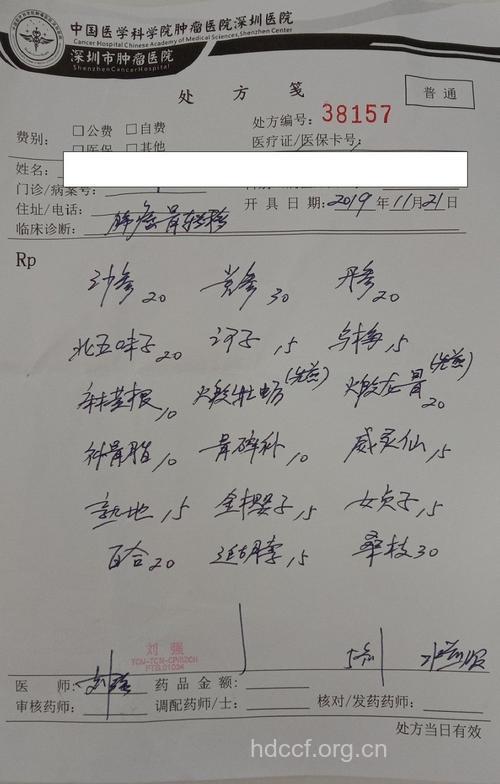 中国医学科学院肿瘤医院深圳医院
Cancer Hospital Chinese Academy of Medical Sciences, Shenzhen Center
深圳市肿瘤医院
ShenzhenCancerHospital
处方笺
普通
处方编号: 38157
费别: □公费 □自费
□医保 □其他
医疗证/医保卡号:
姓名:
门诊/病案号:
住址/电话: 开具日期: 2019年11月21日
临床诊断: 肺癌骨转移
Rp
沙参20 党参30 丹参20
北五味子20 诃子15 乌梅15
麻黄根10 火煅牡蛎(先煎) 火煅龙骨(先煎)20
补骨脂10 骨碎补10 威灵仙15
熟地15 金樱子15 女贞子15
百合20 延胡 15 桑枝30
刘强
医师: 刘强 药品金额:
审核药师: 调配药师/士: 核对/发药药师:
处方当日有效
hdccf.org.cn